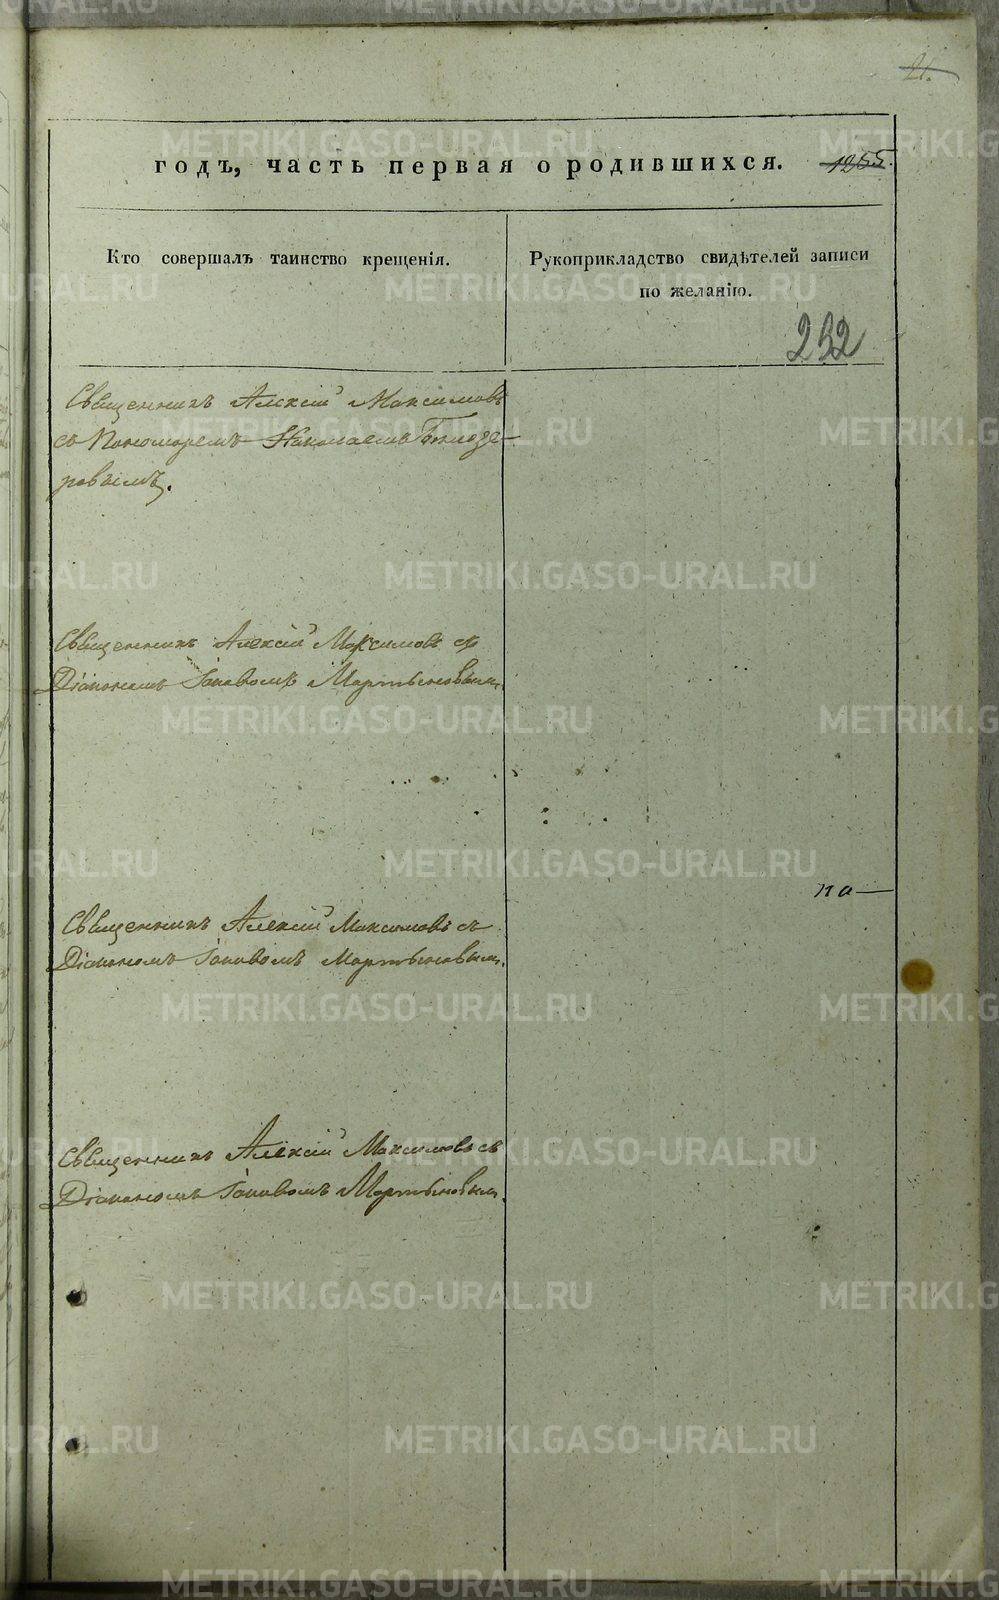 21.
годъ, часть первая о родившихся. 1255.
Кто совершалъ таинство крещенія.
Рукоприкладство свидѣтелей записи
по желанію.
232
Священникъ Алексій Максимовъ
съ Пономоремъ Николаемъ
ровымъ.
Священникъ Алексій Максимовъ съ
Діакономъ Іаковомъ Мартыновымъ.
на—
Священникъ Алексій Максимовъ съ
Діакономъ Іаковомъ Мартыновымъ.
Священникъ Алексій Максимовъ съ
Діакономъ Іаковомъ Мартыновымъ.
METRIKI.GASO-URAL.RU